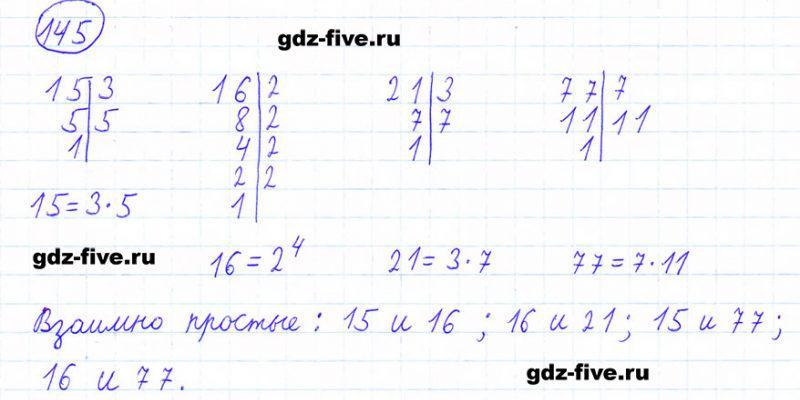 145
gdz-five.ru
15|3
5|5
1|
15=3·5
16|2
8|2
4|2
2|2
1|
21|3
7|7
1|
77|7
11|11
1|
gdz-five.ru
16=2⁴
21=3·7
77=7·11
Взаимно простые: 15 и 16; 16 и 21; 15 и 77;
16 и 77.
gdz-five.ru